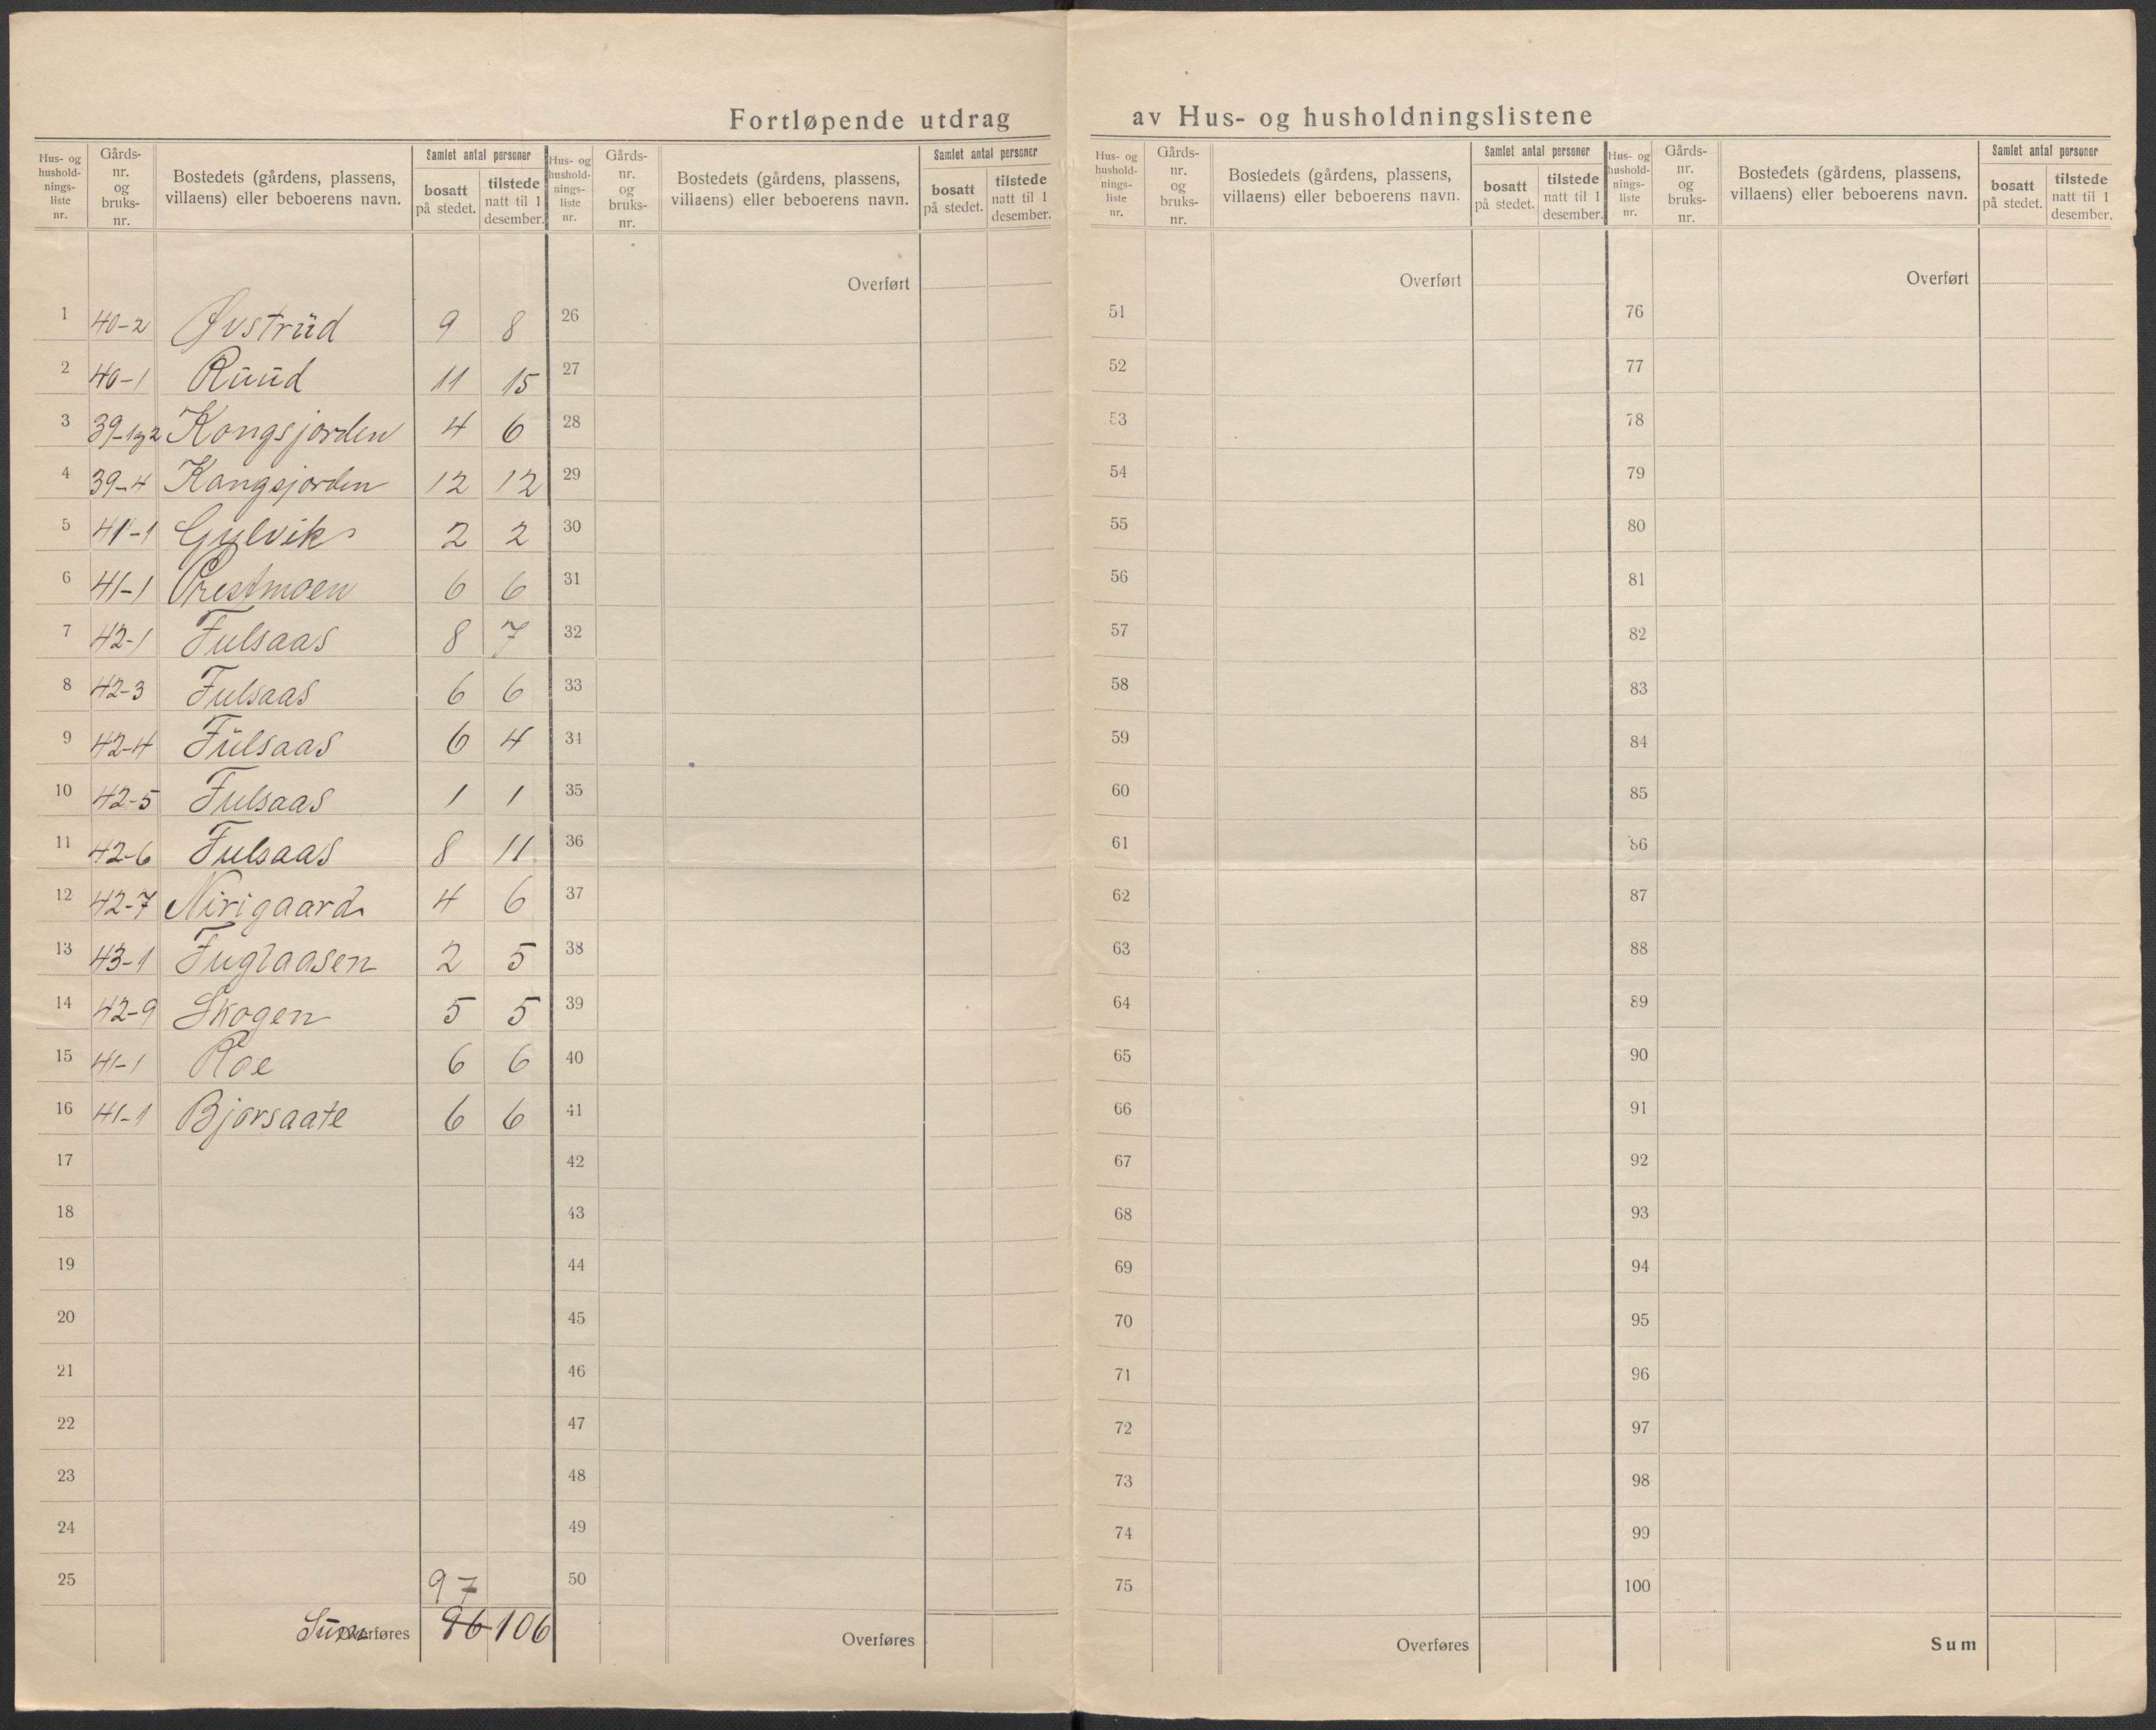 Fortløpende utdrag av Hus- og husholdningslistene
Hus- og hushold-nings-liste nr.
Gårds-nr. og bruks-nr.
Bostedets (gårdens, plassens, villaens) eller beboerens navn.
Samlet antal personer
bosatt på stedet.
tilstede natt til 1 desember.
Hus- og hushold-nings-liste nr.
Gårds-nr. og bruks-nr.
Bostedets (gårdens, plassens, villaens) eller beboerens navn.
Samlet antal personer
bosatt på stedet.
tilstede natt til 1 desember.
Hus- og hushold-nings-liste nr.
Gårds-nr. og bruks-nr.
Bostedets (gårdens, plassens, villaens) eller beboerens navn.
Samlet antal personer
bosatt på stedet.
tilstede natt til 1 desember.
Hus- og hushold-nings-liste nr.
Gårds-nr. og bruks-nr.
Bostedets (gårdens, plassens, villaens) eller beboerens navn.
Samlet antal personer
bosatt på stedet.
tilstede natt til 1 desember.
Overført Overført Overført
1 40-2 Øvstrud 9 8 26 51 76
2 40-1 Ruud 11 15 27 52 77
3 39-1og2 Kongsjorden 4 6 28 53 78
4 39-4 Kongsjorden 12 12 29 54 79
5 41-1 Gulvik 2 2 30 55 80
6 41-1 Prestmoen 6 6 31 56 81
7 42-1 Fulsaas 8 7 32 57 82
8 42-3 Fulsaas 6 6 33 58 83
9 42-4 Fulsaas 6 4 34 59 84
10 42-5 Fulsaas 1 1 35 60 85
11 42-6 Fulsaas 8 11 36 61 86
12 42-7 Nirigaard 4 6 37 62 87
13 43-1 Fuglaasen 2 5 38 63 88
14 42-9 Skogen 5 5 39 64 89
15 41-1 Roe 6 6 40 65 90
16 41-1 Bjorsaate 6 6 41 66 91
17 42 67 92
18 43 68 93
19 44 69 94
20 45 70 95
21 46 71 96
22 47 72 97
23 48 73 98
24 49 74 99
25 97 50 75 100
Sum Overføres 96 106 Overføres Overføres Sum